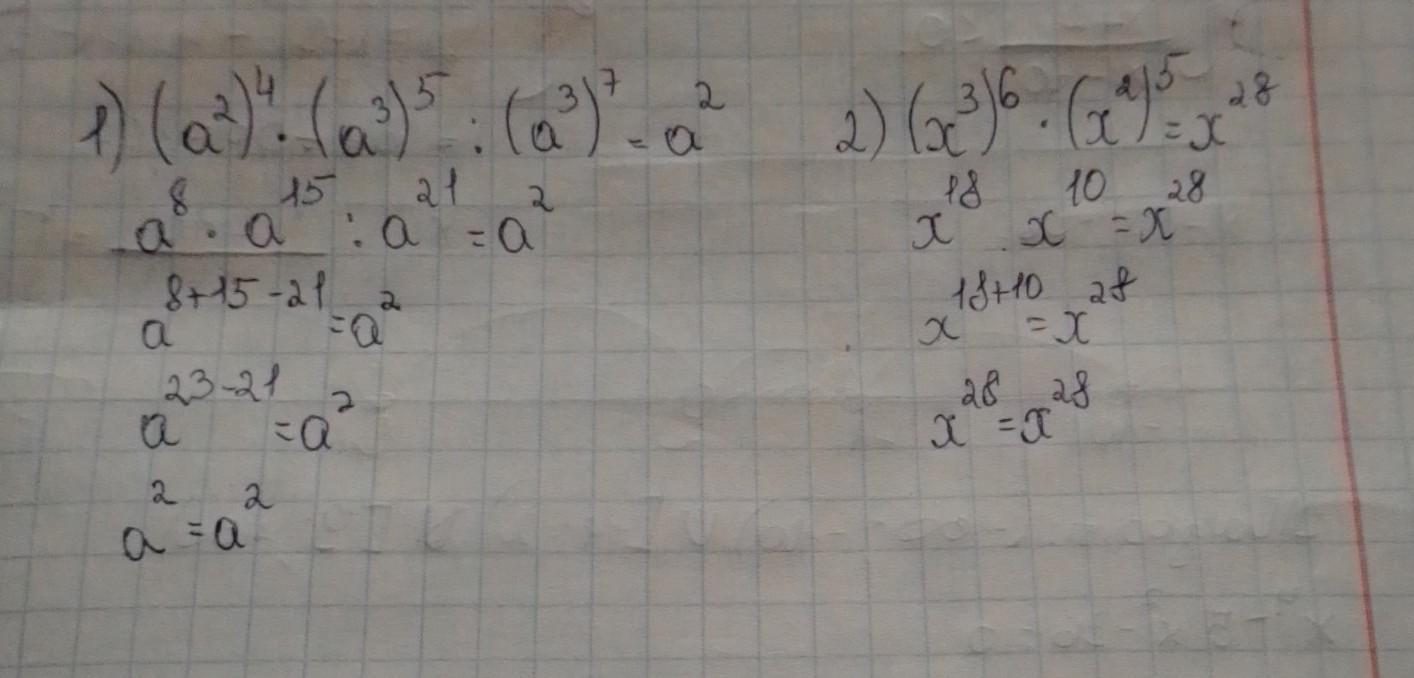 1) (a²)⁴ · (a³)⁵ : (a³)⁷ = a²
a⁸ · a¹⁵ : a²¹ = a²
a⁸⁺¹⁵⁻²¹ = a²
a²³⁻²¹ = a²
a² = a²
2) (x³)⁶ · (x²)⁵ = x²⁸
x¹⁸ · x¹⁰ = x²⁸
x¹⁸⁺¹⁰ = x²⁸
x²⁸ = x²⁸